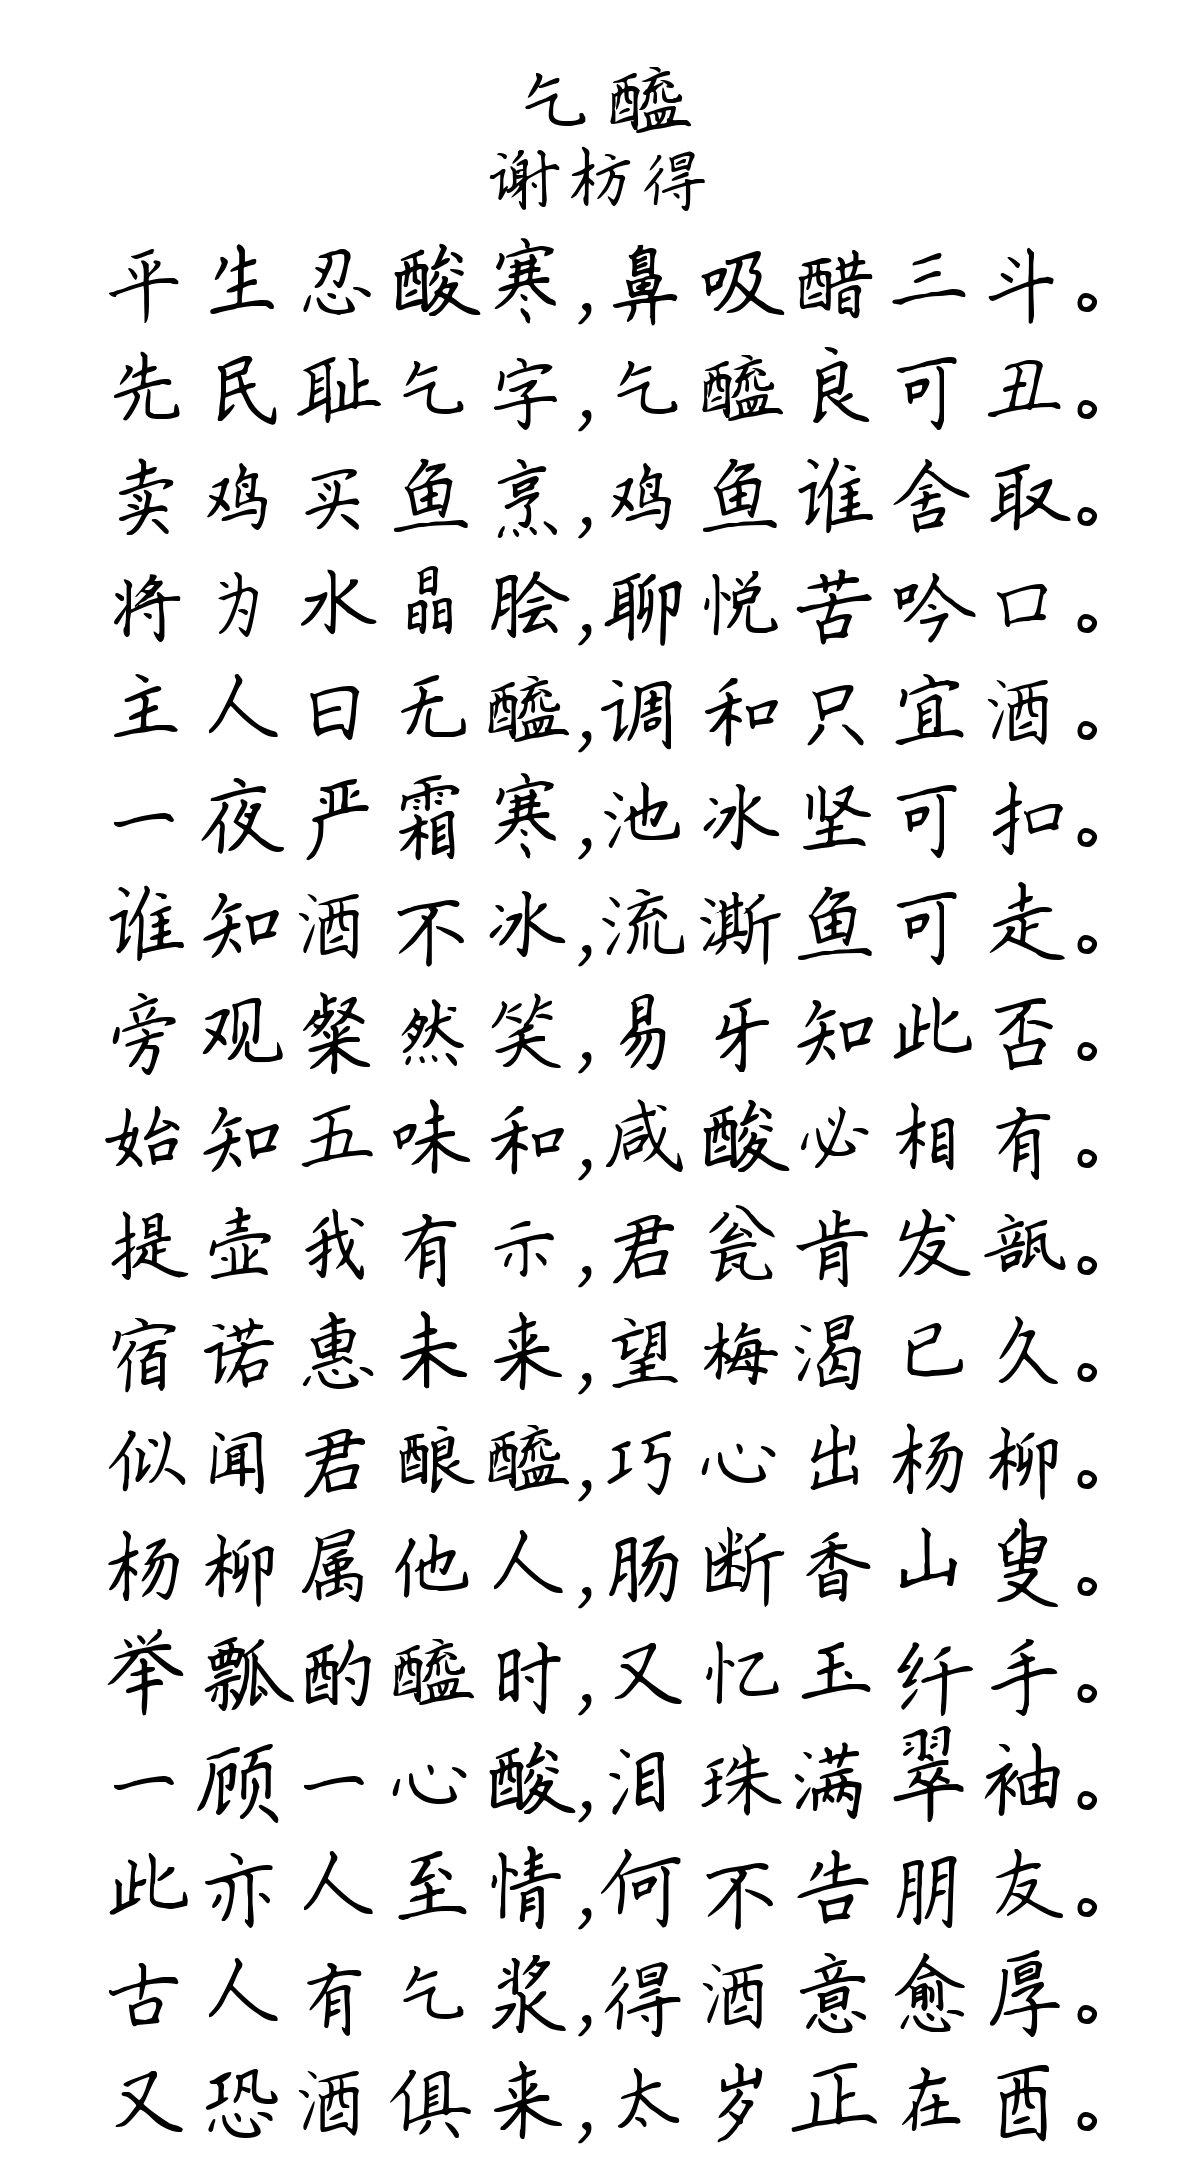 乞醯
谢枋得
平生忍酸寒,鼻吸醋三斗。
先民耻乞字,乞醯良可丑。
卖鸡买鱼烹,鸡鱼谁舍取。
将为水晶脍,聊悦苦吟口。
主人曰无醯,调和只宜酒。
一夜严霜寒,池冰坚可扣。
谁知酒不冰,流澌鱼可走。
旁观粲然笑,易牙知此否。
始知五味和,咸酸必相有。
提壶我有示,君瓮肯发瓿。
宿诺惠未来,望梅渴已久。
似闻君酿醯,巧心出杨柳。
杨柳属他人,肠断香山叟。
举瓢酌醯时,又忆玉纤手。
一顾一心酸,泪珠满翠袖。
此亦人至情,何不告朋友。
古人有乞浆,得酒意愈厚。
又恐酒俱来,太岁正在酉。